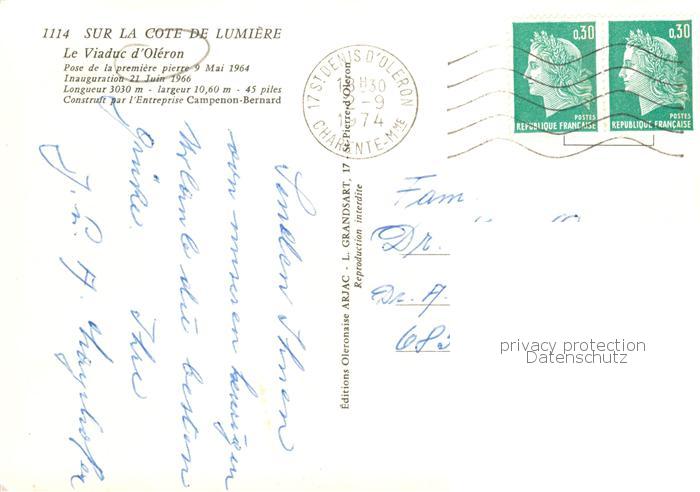 1114 SUR LA COTE DE LUMIÈRE
Le Viaduc d'Oléron
Pose de la première pierre 9 Mai 1964
Inauguration 21 Juin 1966
Longueur 3030 m - largeur 10,60 m - 45 piles
Construit par l'Entreprise Campenon-Bernard
17 ST DENIS D'OLERON
18H30
12-9
1974
CHARENTE-MME
0,30
POSTES
REPUBLIQUE FRANÇAISE
0,30
POSTES
REPUBLIQUE FRANÇAISE
Senden Ihnen
von unserem heurigen
Urlaub die besten
Grüße. Ihre
Éditions Oleronaise ARJAC - L. GRANDSART, 17 - St-Pierre-d'Oléron
Reproduction interdite
Fam.
Dr.
Dr. A.
privacy protection
Datenschutz